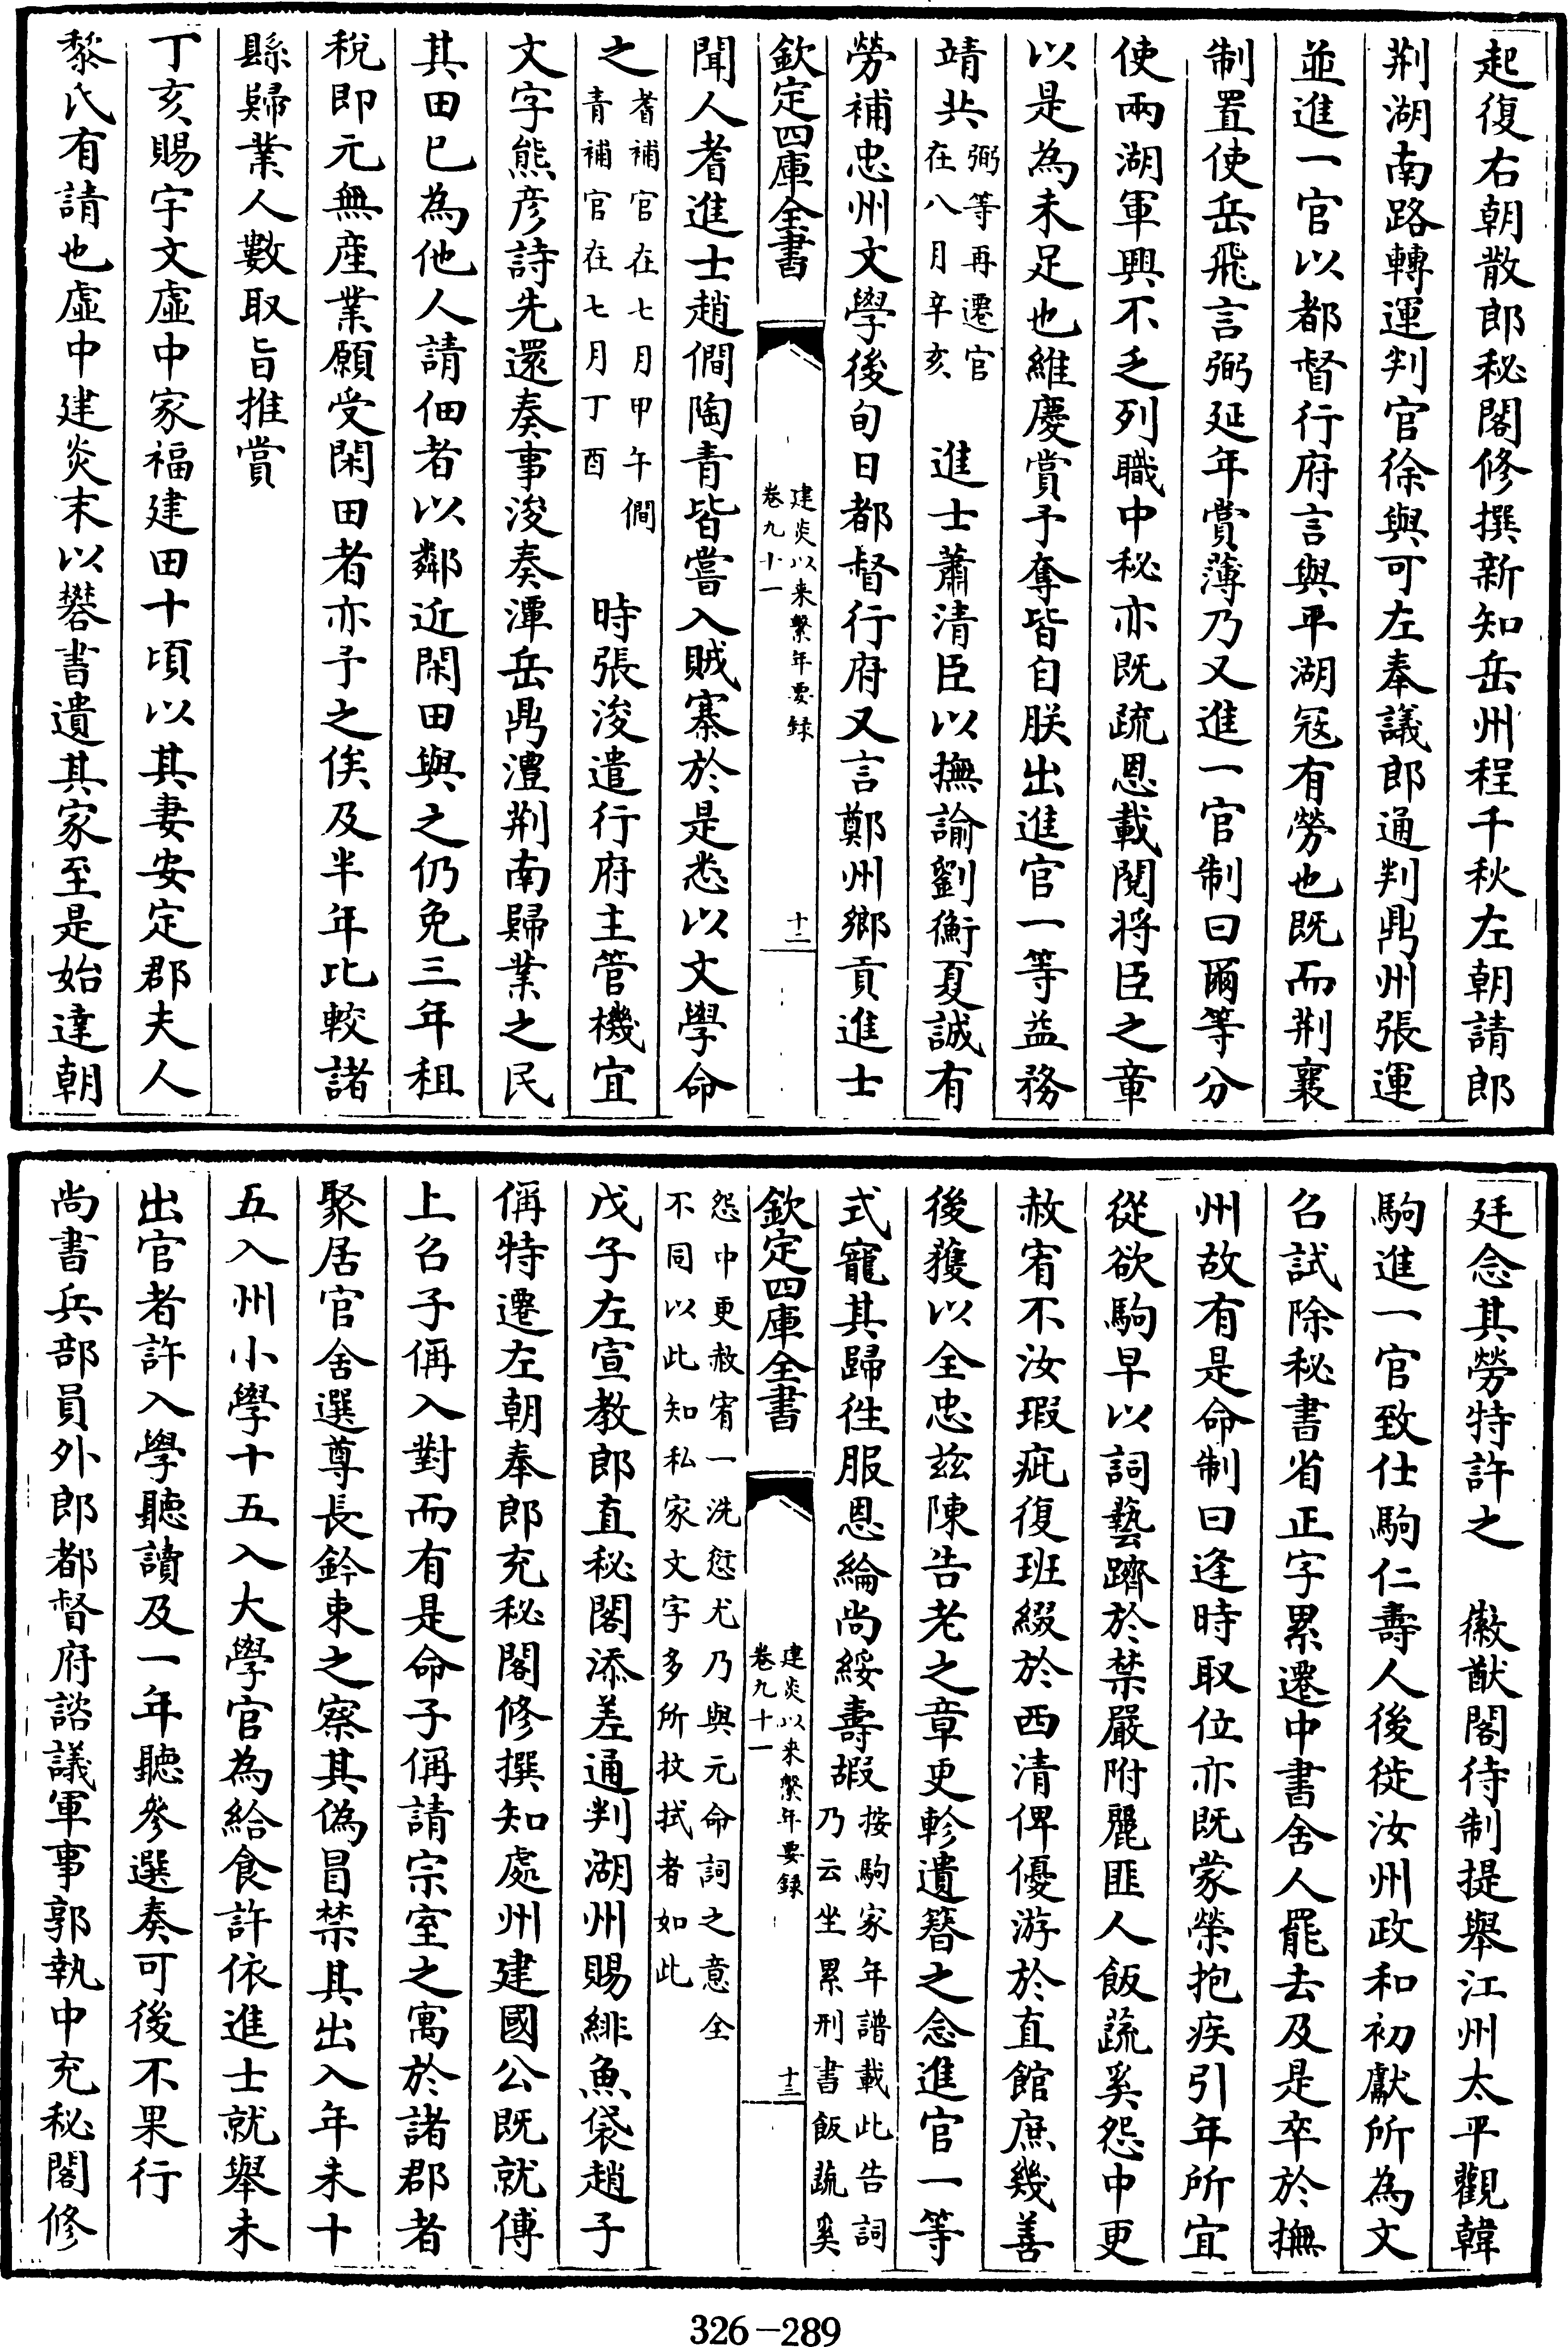 起復右朝散郎秘閣修撰新知岳州程千秋左朝請郎
荆湖南路轉運判官徐與可左奉議郎通判鼎州張運
並進一官以都督行府言與平湖冦有勞也既而荆襄
制置使岳飛言弼延年賞薄乃又進一官制曰爾等分
使兩湖軍興不乏列職中秘亦既疏恩載閱將臣之章
以是為未足也維慶賞予奪皆自朕出進官一等益務
靖共弼等再遷官在八月辛亥　進士蕭清臣以撫諭劉衡夏誠有
勞補忠州文學後旬日都督行府又言鄭州鄉貢進士
欽定四庫全書
建炎以来繫年要録
卷九十一
十二
聞人耆進士趙僴陶青皆嘗入賊寨於是悉以文學命
之耆補官在七月甲午僴青補官在七月丁酉　時張浚遣行府主管機宜
文字熊彦詩先還奏事浚奏潭岳鼎澧荆南歸業之民
其田已為他人請佃者以鄰近閑田與之仍免三年租
稅即元無産業願受閑田者亦予之俟及半年比較諸
縣歸業人數取㫖推賞
丁亥賜宇文虛中家福建田十頃以其妻安定郡夫人
黎氏有請也虛中建炎末以礬書遺其家至是始達朝
廷念其勞特許之　徽猷閣待制提舉江州太平觀韓
駒進一官致仕駒仁壽人後徙汝州政和初獻所為文
召試除秘書省正字累遷中書舍人罷去及是卒於撫
州故有是命制曰逢時取位亦既蒙榮抱疾引年所宜
從欲駒早以詞藝躋於禁嚴附麗匪人飯蔬奚怨中更
赦宥不汝瑕疵復班綴於西清俾優游於直館庶幾善
後獲以全忠兹陳告老之章更軫遺簪之念進官一等
式寵其歸徃服恩綸尚綏壽嘏按駒家年譜載此告詞乃云坐累刑書飯蔬奚
欽定四庫全書
建炎以来繫年要録
卷九十一
十三
怨中更赦宥一洗愆尤乃與元命詞之意全
不同以此知私家文字多所抆拭者如此
戊子左宣教郎直秘閣添差通判湖州賜緋魚袋趙子
偁特遷左朝奉郎充秘閣修撰知處州建國公既就傅
上召子偁入對而有是命子偁請宗室之寓於諸郡者
聚居官舍選尊長鈐束之察其偽冒禁其出入年未十
五入州小學十五入大學官為給食許依進士就舉未
出官者許入學聽讀及一年聽參選奏可後不果行
尚書兵部員外郎都督府諮議軍事郭執中充秘閣修
326-289